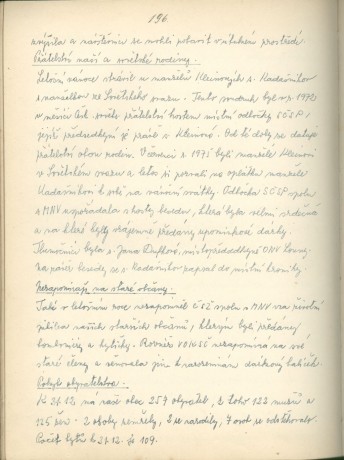 196
a návštěvníci se mohli pobavit v útulném prostředí.
Přátelství naší a sovětské rodiny.
Letošní vánoce strávil u manželů Kleinových s. Kadašnikov
s manželkou ze Sovětského svazu. Tento soudruh byl v r. 1972
v měsíci čsl. sovět. přátelství hostem místní odbočky SČSP i
její předsedkyní je právě s. Kleinová. Od té doby se datuje
přátelství obou rodin. V červenci 1975 byli manželé Kleinovi
v Sovětském svazu a letos je pozvali na oplátku manželé
Kadašnikovi k sobě na vánoční svátky. Odbočka SČSP spolu
s MNV uspořádala s hosty besedu, která byla velmi srdečná
a na které byly vzájemně předány upomínkové dárky.
Tlumočnicí byla s. Jana Dufková, místopředsedkyně ONV Louny.
Na závěr besedy se s. Kadašnikov zapsal do místní kroniky.
Nezapomínají na staré občany.
Také v letošním roce nezapomněl ČSŽ spolu s MNV na vánoční
našich starších občanů, kterým byla předány
bonboniéry a kytičky. Rovněž nezapomíná na své
staré členy a věnovala jim k narozeninám dárkový balíček.
Pohyb obyvatelstva.
K 31.12. má naše obec 257 obyvatel, z toho 132 mužů a
125 žen. 2 osoby zemřely, 3 se narodily, 7 osob se odstěhovalo.
Počet bytů k 31.12. je 109.